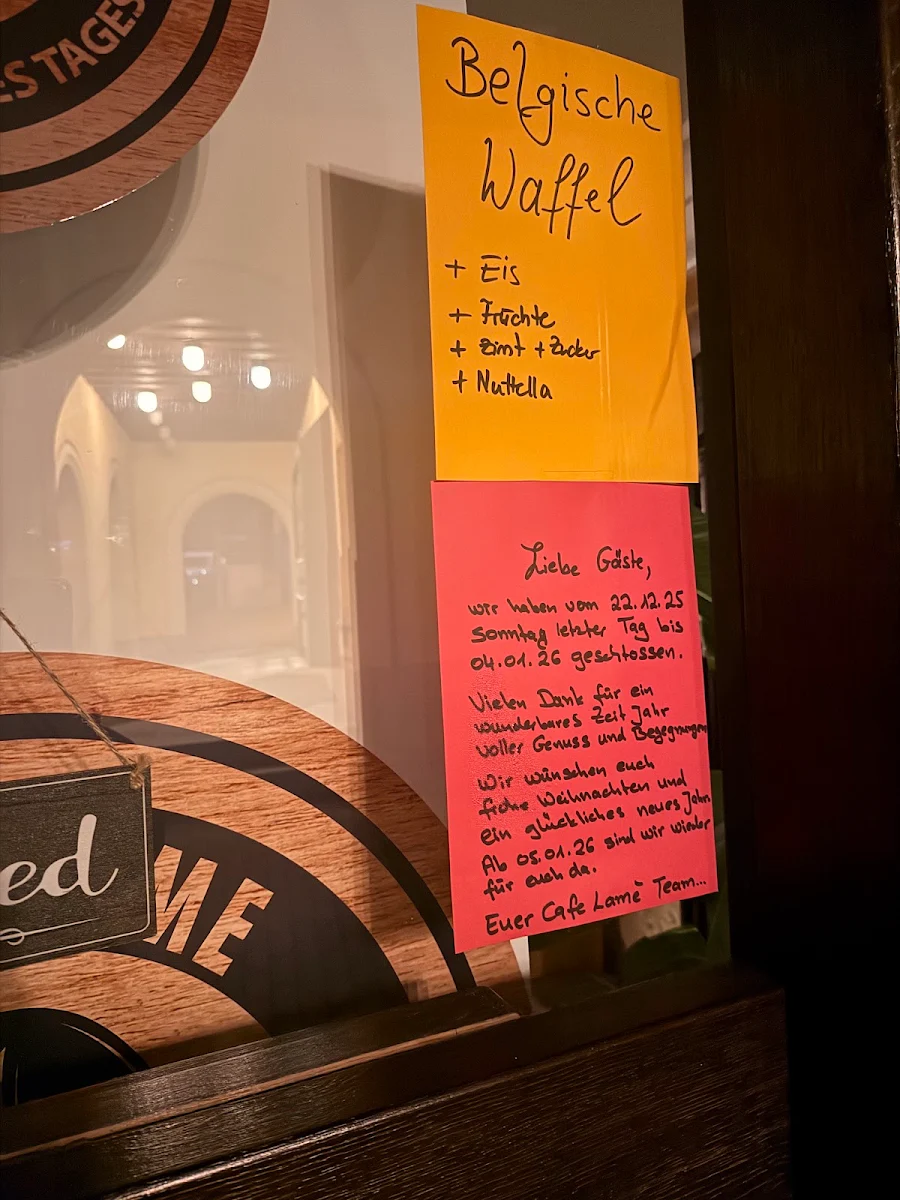 ES TAGES
Belgische
Waffel
+ Eis
+ Früchte
+ Zimt + Zucker
+ Nuttella
Liebe Gäste,
wir haben vom 22.12.25
Sonntag letzter Tag bis
04.01.26 geschlossen.
Vielen Dank für ein
wunderbares Zeit Jahr
voller Genuss und Begegnungen
Wir wünschen euch
frohe Weihnachten und
ein glückliches neues Jahr.
Ab 05.01.26 sind wir wieder
für euch da.
Euer Cafe Lamè Team...
ed
ME